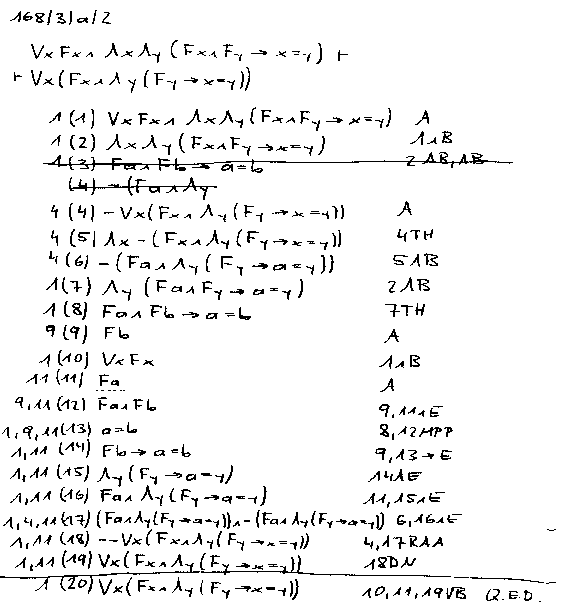 168/3/a/2
VxFx∧ ΛxΛy(Fx∧Fy → x=y) ⊢
⊢ Vx(Fx∧Λy(Fy→x=y))
1 (1) VxFx∧ ΛxΛy(Fx∧Fy→x=y) A
1 (2) ΛxΛy(Fx∧Fy→x=y) 1∧B
1 (3) Fa∧Fb → a=b 2ΛB,ΛB
(4) -(Fa∧Λy
4 (4) -Vx(Fx∧Λy(Fy→x=y)) A
4 (5) Λx-(Fx∧Λy(Fy→x=y)) 4TH
4 (6) -(Fa∧Λy(Fy→a=y)) 5ΛB
1 (7) Λy(Fa∧Fy→a=y) 2ΛB
1 (8) Fa∧Fb→a=b 7TH
9 (9) Fb A
1 (10) VxFx 1∧B
11 (11) Fa A
9,11 (12) Fa∧Fb 9,11∧E
1,9,11 (13) a=b 8,12MPP
1,11 (14) Fb→a=b 9,13→E
1,11 (15) Λy(Fy→a=y) 14ΛE
1,11 (16) Fa∧Λy(Fy→a=y) 11,15∧E
1,4,11 (17) (Fa∧Λy(Fy→a=y))∧-(Fa∧Λy(Fy→a=y)) 6,16∧E
1,11 (18) --Vx(Fx∧Λy(Fy→x=y)) 4,17RAA
1,11 (19) Vx(Fx∧Λy(Fy→x=y)) 18DN
1 (20) Vx(Fx∧Λy(Fy→x=y)) 10,11,19VB Q.E.D.